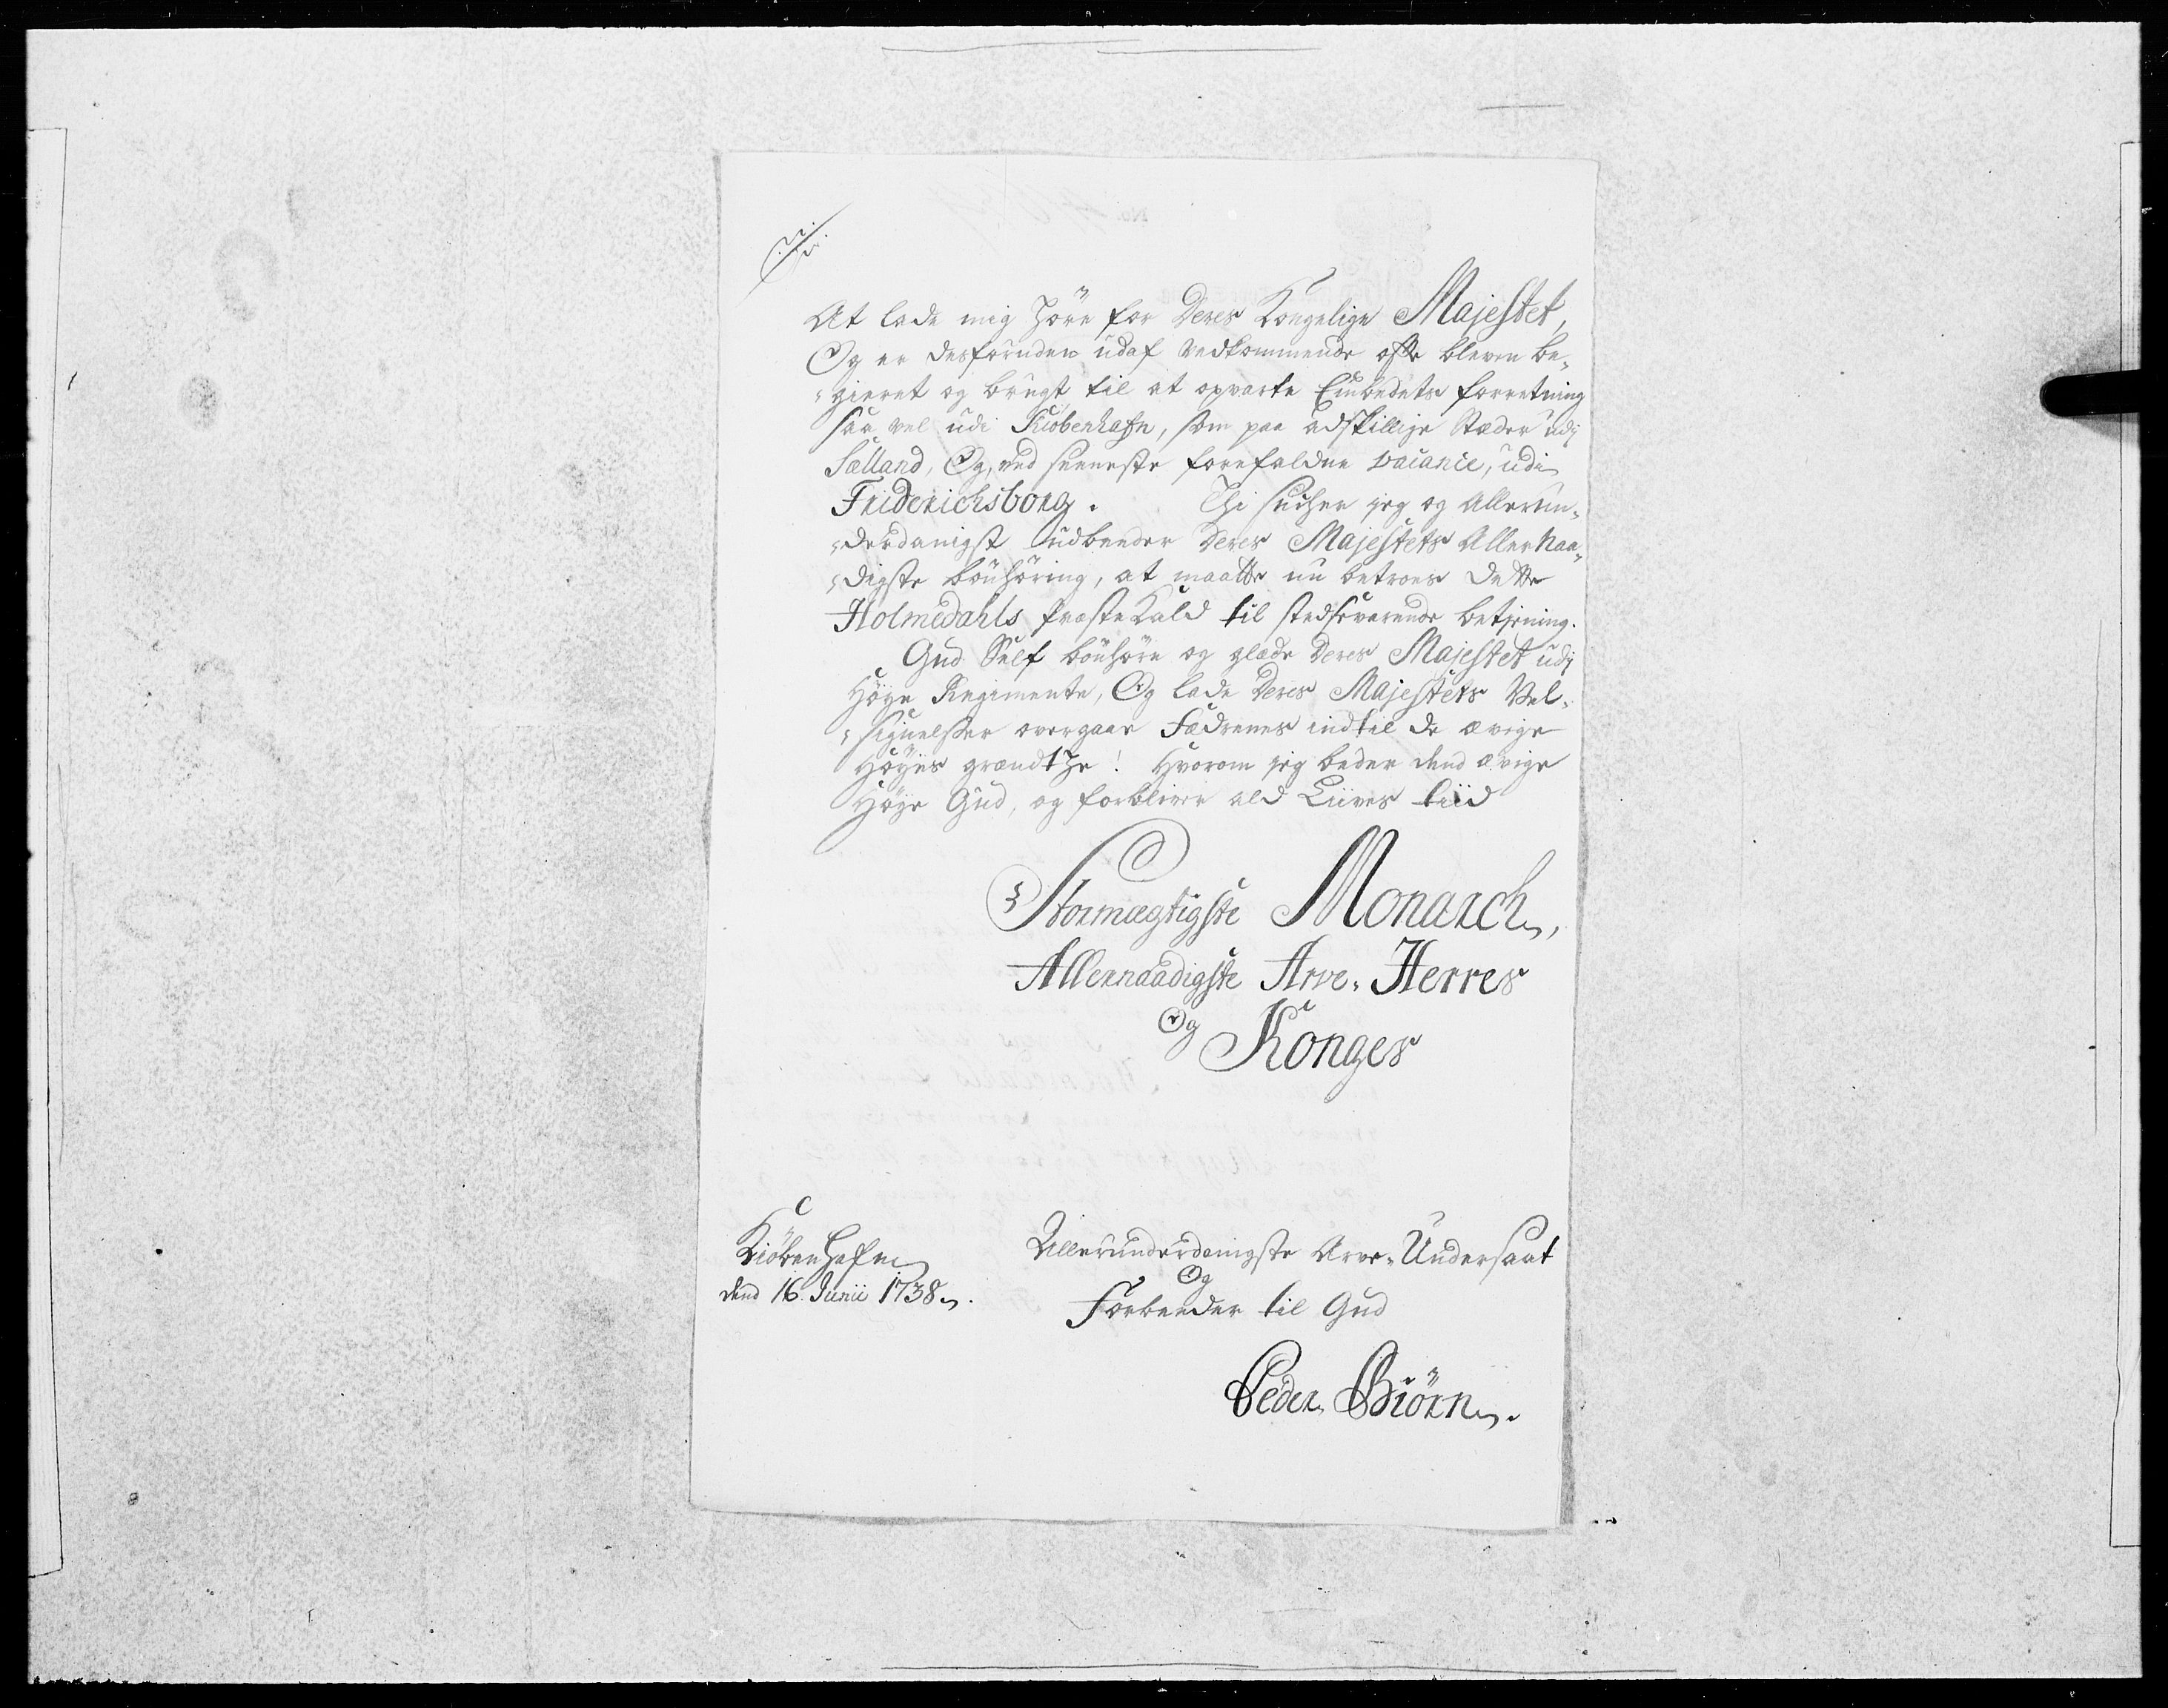 At lade mig høre for Deres Kongelige Majestet,
Og er desforuden udaf vedkommende ofte bleven be-
gieret og brugt til at opvarte Embedets forretning
saa vel udi Kiöbenhafn, som paa adskillige Stæder udj
Sælland, Og, ved seeneste forefaldne vacance, udi
Friderichsborg. Thi sucher jeg og Allerun-
derdanigst udbeeder Deres Majestets Allernaa-
digste bönhöring, at maatte nu betroes dette
Holmedahls Præste Kald til stedsevarende betjening.
Gud Self bönhöre og glæde Deres Majestet udj
Höye Regimente, Og lade Deres Majestets Vel-
signelser overgaae Fædrenes indtil de ævige
Höyes grændtze! Hvorom jeg beder dend ævige
Höye Gud, og forbliver ald Liives tiid
Stormægtigste Monarch,
Allernaadigste Arve-Herres
Og
Konges
Kiöbenhafn
dend 16. Junii 1738.
Allerunderdanigste Arve-Undersaat
Og
Forbeeder til Gud
Peder Biörn.